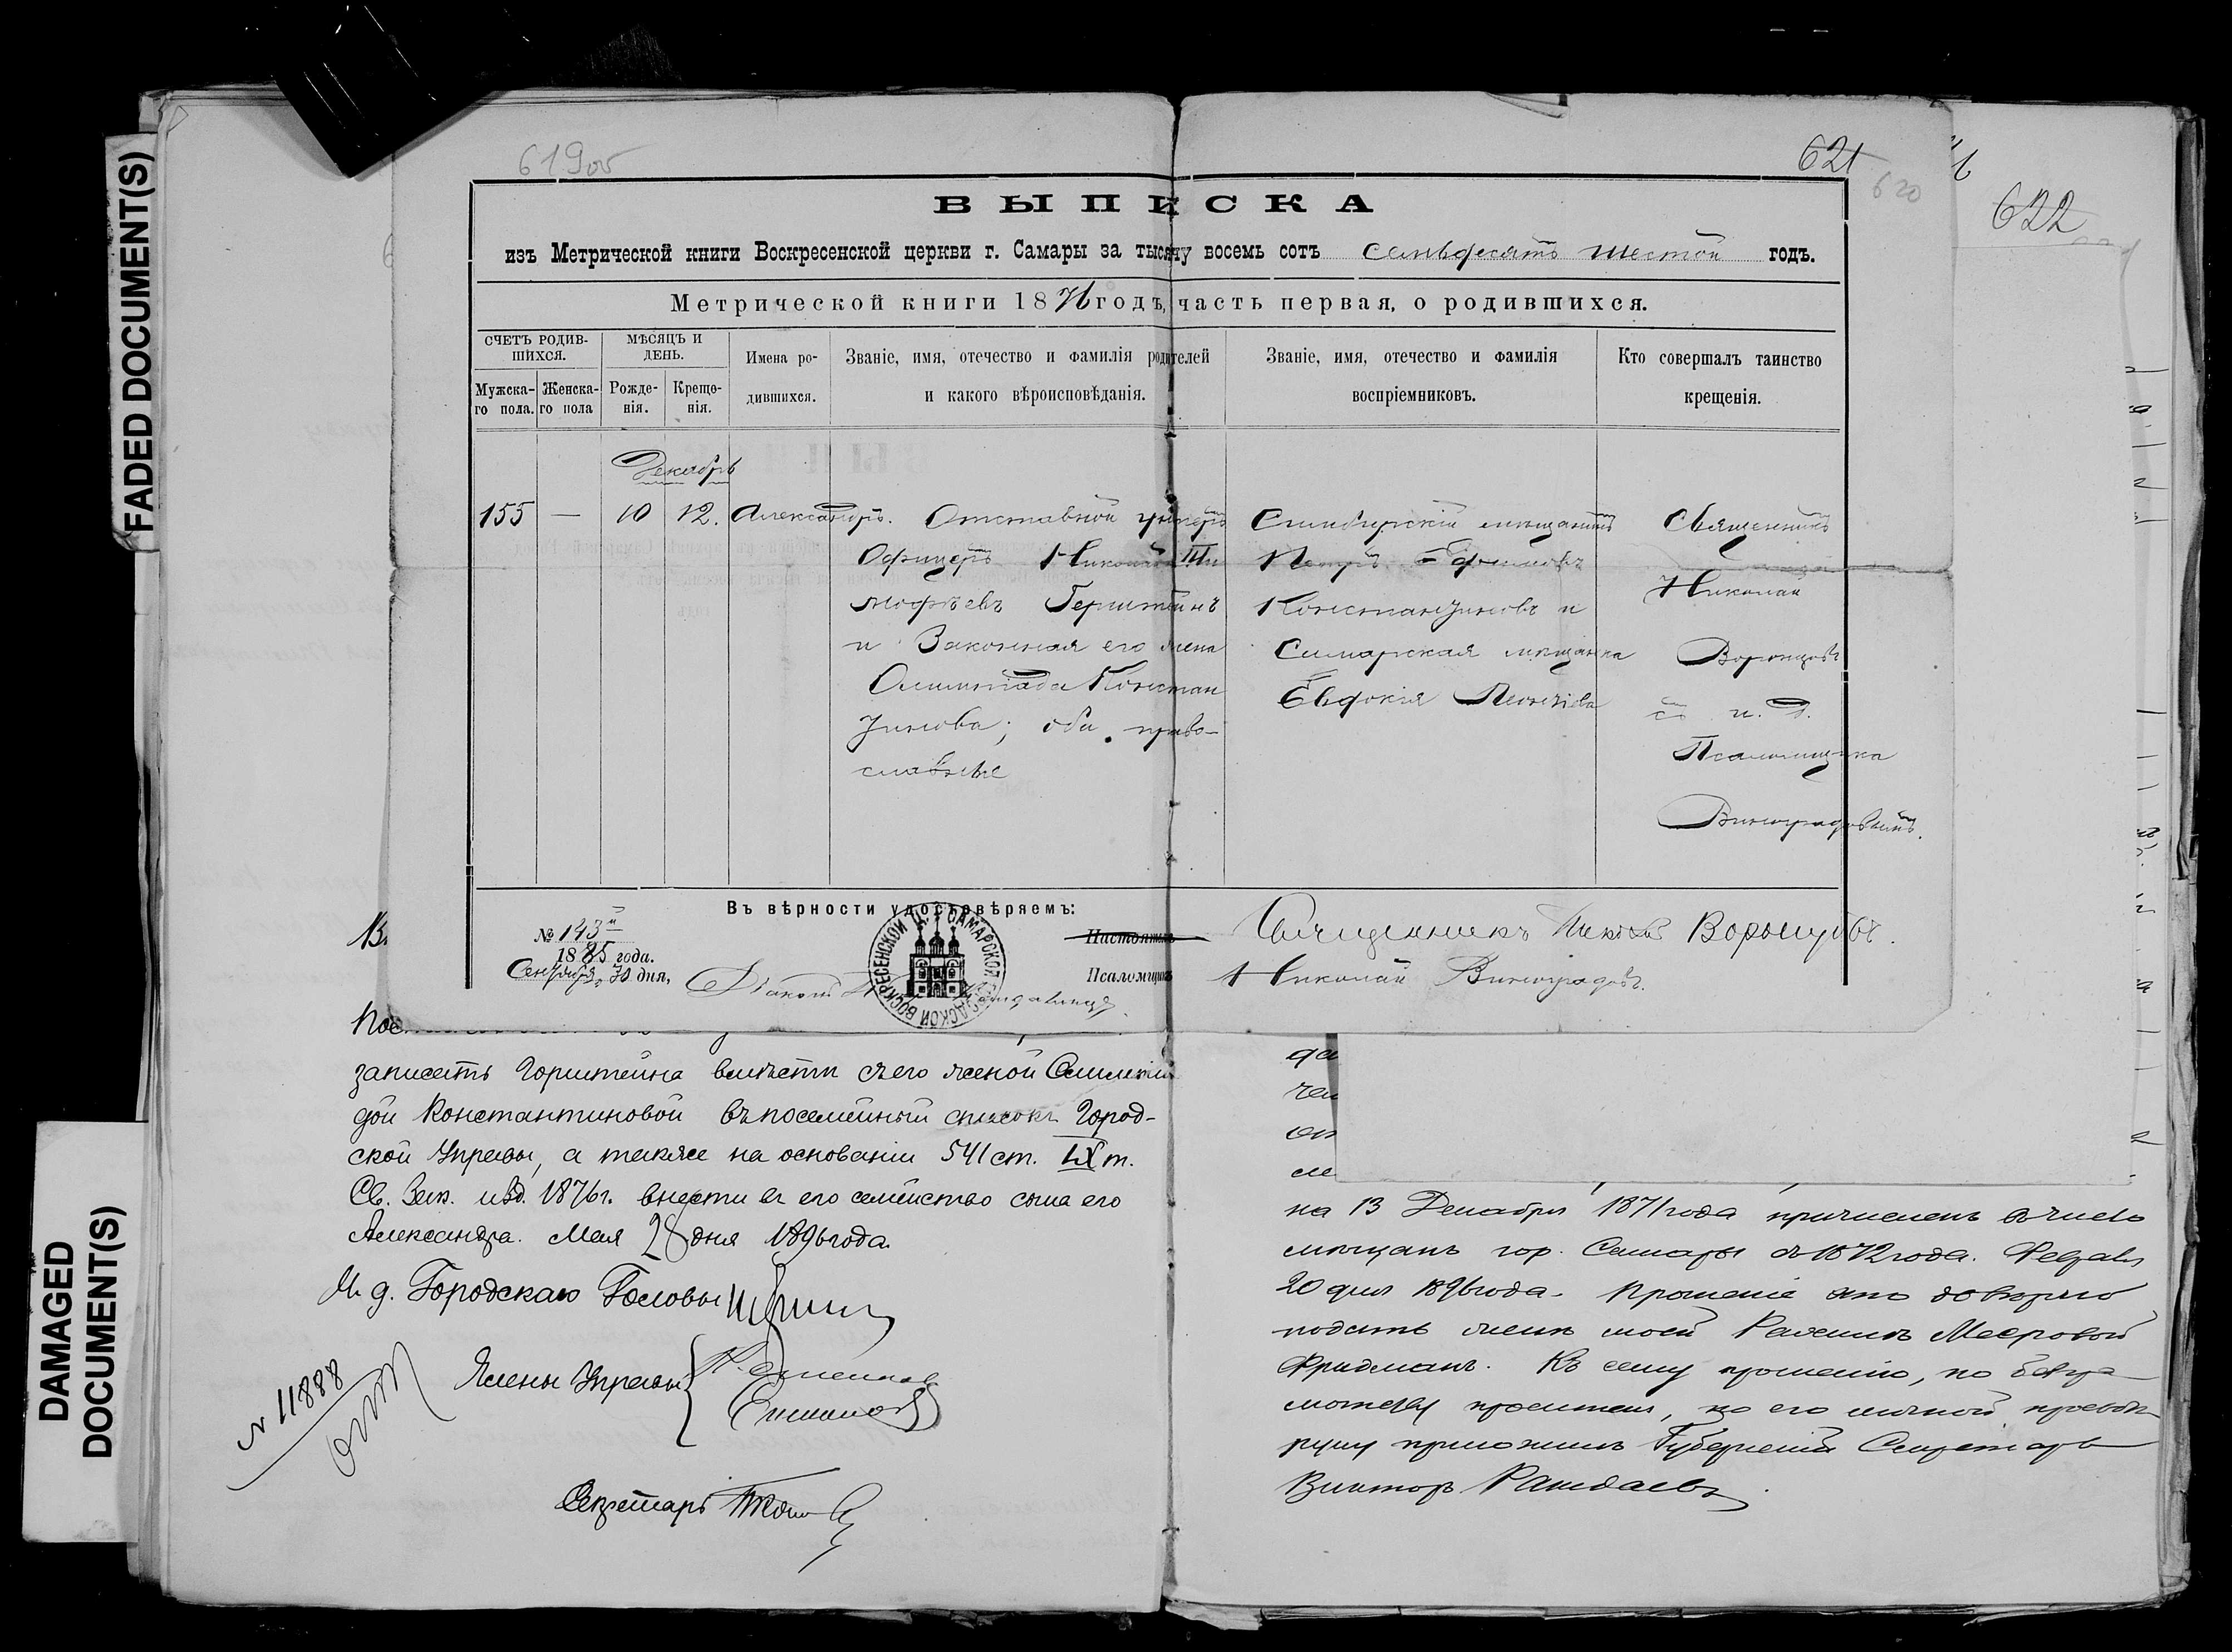 FADED DOCUMENT(S)
DAMAGED
DOCUMENT(S)
619об
621
620
622
ВЫПИСКА
изъ Метрической книги Воскресенской церкви г. Самары за тысячу восемь сотъ семьдесятъ шестой годъ.
Метрической книги 1876 годъ, часть первая, о родившихся.
СЧЕТЪ РОДИВ-
ШИХСЯ.
Мужска-
го пола.
Женска-
го пола
МѢСЯЦЪ И
ДЕНЬ.
Рожде-
нія.
Креще-
нія.
Имена ро-
дившихся.
Званіе, имя, отечество и фамилія родителей
и какого вѣроисповѣданія.
Званіе, имя, отечество и фамилія
воспріемниковъ.
Кто совершалъ таинство
крещенія.
Декабрь
155 — 10 12. Александръ.
Отставной унтеръ
Офицеръ Николай Ти
мофѣевъ Герштейнъ
и Законная его жена
Олимпіада Констан
тинова; оба право-
славные
Симбирскій мѣщанинъ
Петръ Ефимовъ
Константиновъ и
Самарская мѣщанка
Евдокія
Священникъ
Николай
Воронцовъ
съ и. д.
Псаломщика
Виноградовымъ.
Въ вѣрности удостовѣряемъ:
№ 143
1885 года.
Сентября, 30 дня,
Настоятель
Священникъ Николай Воронцовъ.
Псаломщикъ
Николай Виноградовъ.
Діаконъ
САМАРСКОЙ ГРАДСКОЙ ВОСКРЕСЕНСКОЙ Ц.
записать Горштейна вмѣстѣ съ его женой Олимпіа
дой Константиновой въ посемейный списокъ Город-
ской Управы, а также на основаніи 541 ст. IX т.
Св. Зак. изд. 1876 г. внести въ его семейство сына его
Александра. Мая 28 дня 1896 года.
И. д. Городскаго Головы
Члены Управы
№ 11888
Секретарь
на 13 Декабря 1871 года причисленъ въ число
мѣщанъ гор. Самары съ 1872 года. Февраля
20 дня 1896 года. Прошеніе это довѣряю
подать женѣ моей Мееровой
Фридманъ. Къ сему прошенію, по безгра
мотству просителя, по его личной просьбѣ
руку приложилъ Губернскій Секретарь
Викторъ